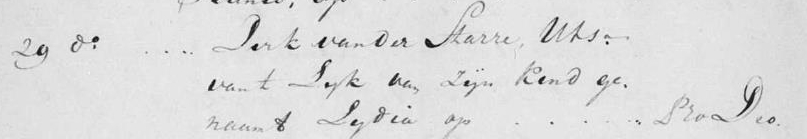 29 do .... Dirk van der Starre, Uts:
van t Lyk van zijn Kend ge.
naamt Lydia op ...... Pro Deo.